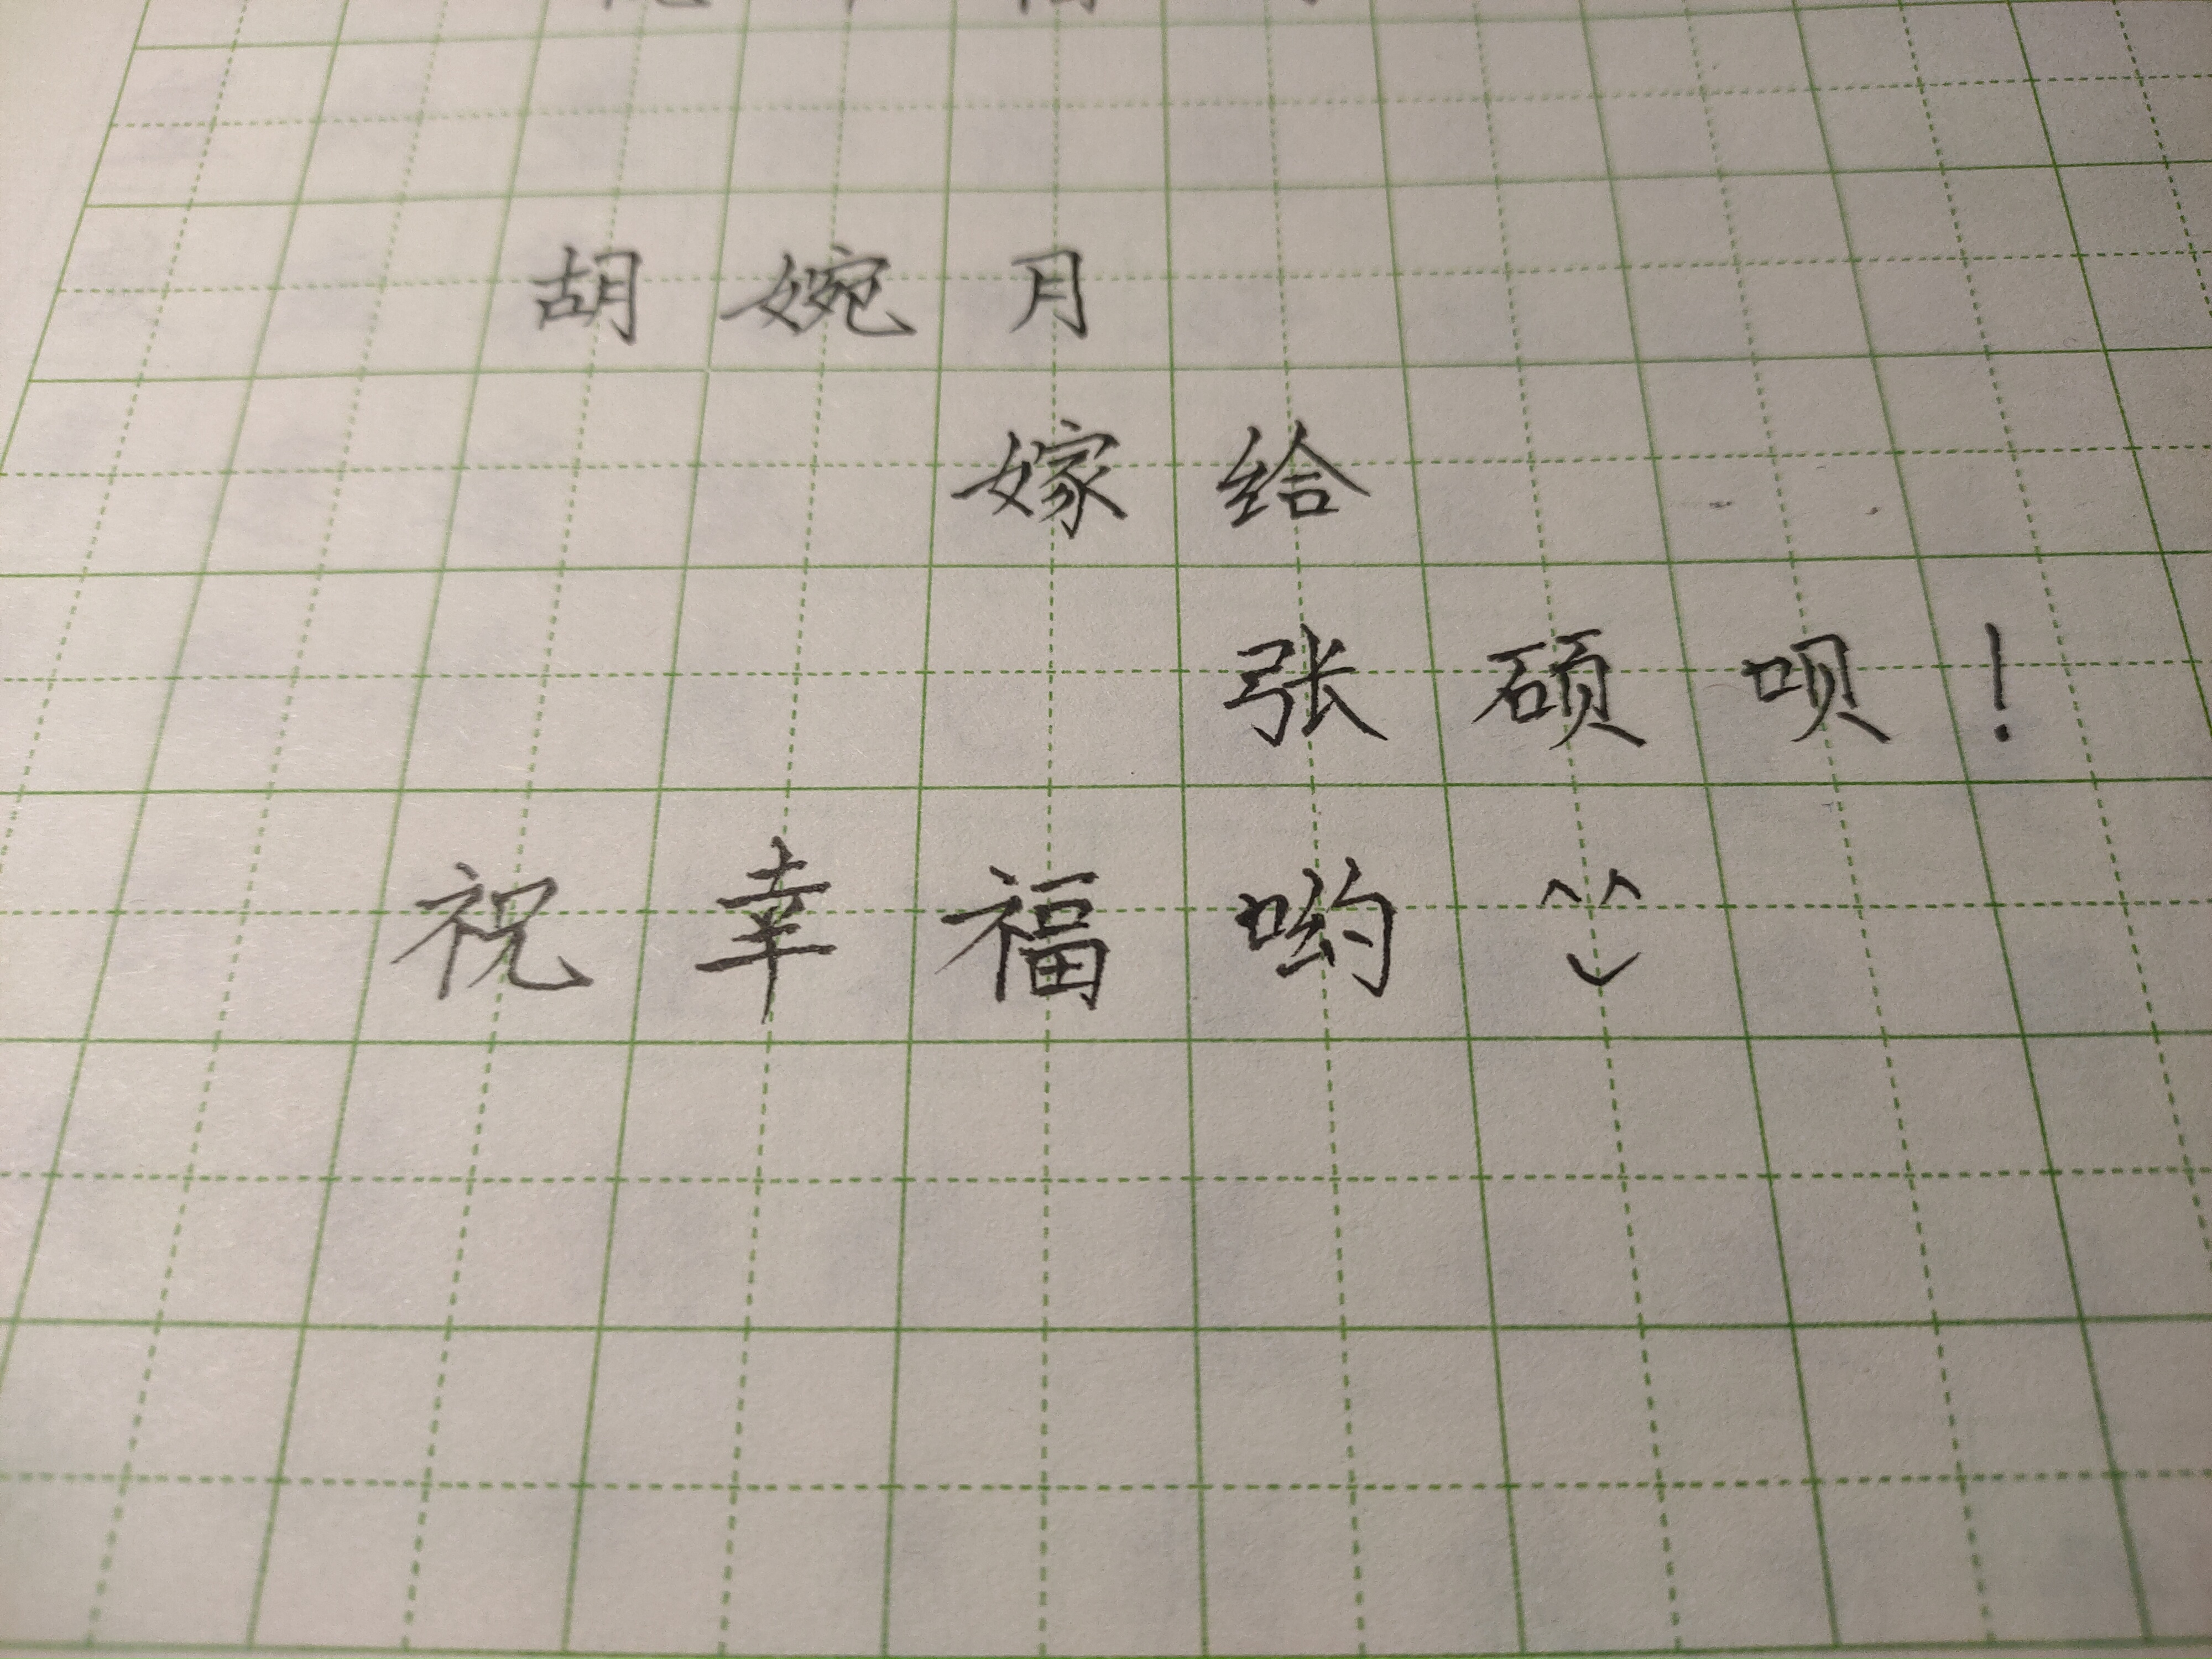 胡婉月
嫁给
张硕呗！
祝幸福哟